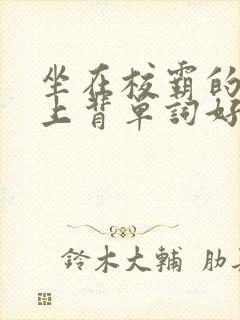 坐在校霸的
上背单词好
鈴木大輔 肋